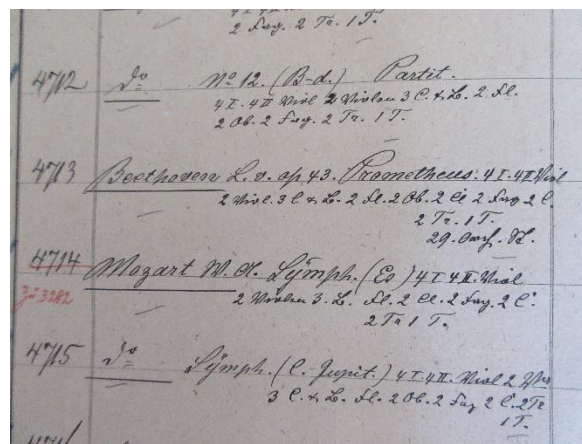 2 Fag. 2 Tr. 1 T.
4712 do No 12. (B-d.) Partit.
4 I. 4 II Viol 2 Violen 3 C. & B. 2 Fl.
2 Ob. 2 Fag. 2 Tr. 1 T.
4713 Beethoven L. v. op 43. Prometheus. 4 I. 4 II Viol
2 Viol. 3 C & B. 2 Fl. 2 Ob. 2 Cl. 2 Fag 2 C.
2 Tr. 1 T.
29.
4714 Mozart W. A. Symph. (Es) 4 I 4 II. Viol
3282 2 Violen 3. B. Fl. 2 Cl. 2 Fag. 2 C.
2 Tr 1 T.
4715 do Symph. (C. Jupit.) 4 I. 4 II. Viol 2
3 C. & B. Fl. 2 Ob. 2 Fag 2 C. 2 Tr
1 T.